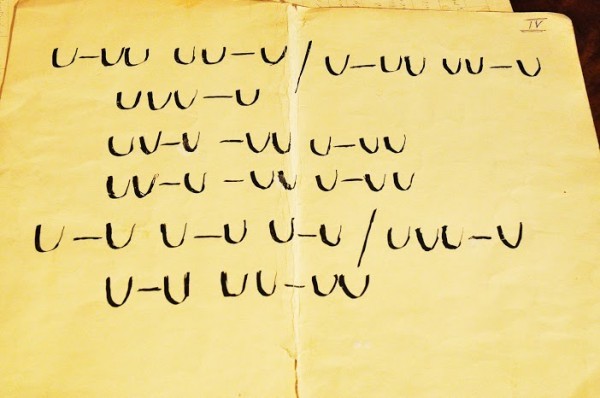 IV
U–UU UU–U / U–UU UU–U
UUU–U
UU–U –UU U–UU
UU–U –UU U–UU
U–U U–U U–U / UUU–U
U–U UU–UU